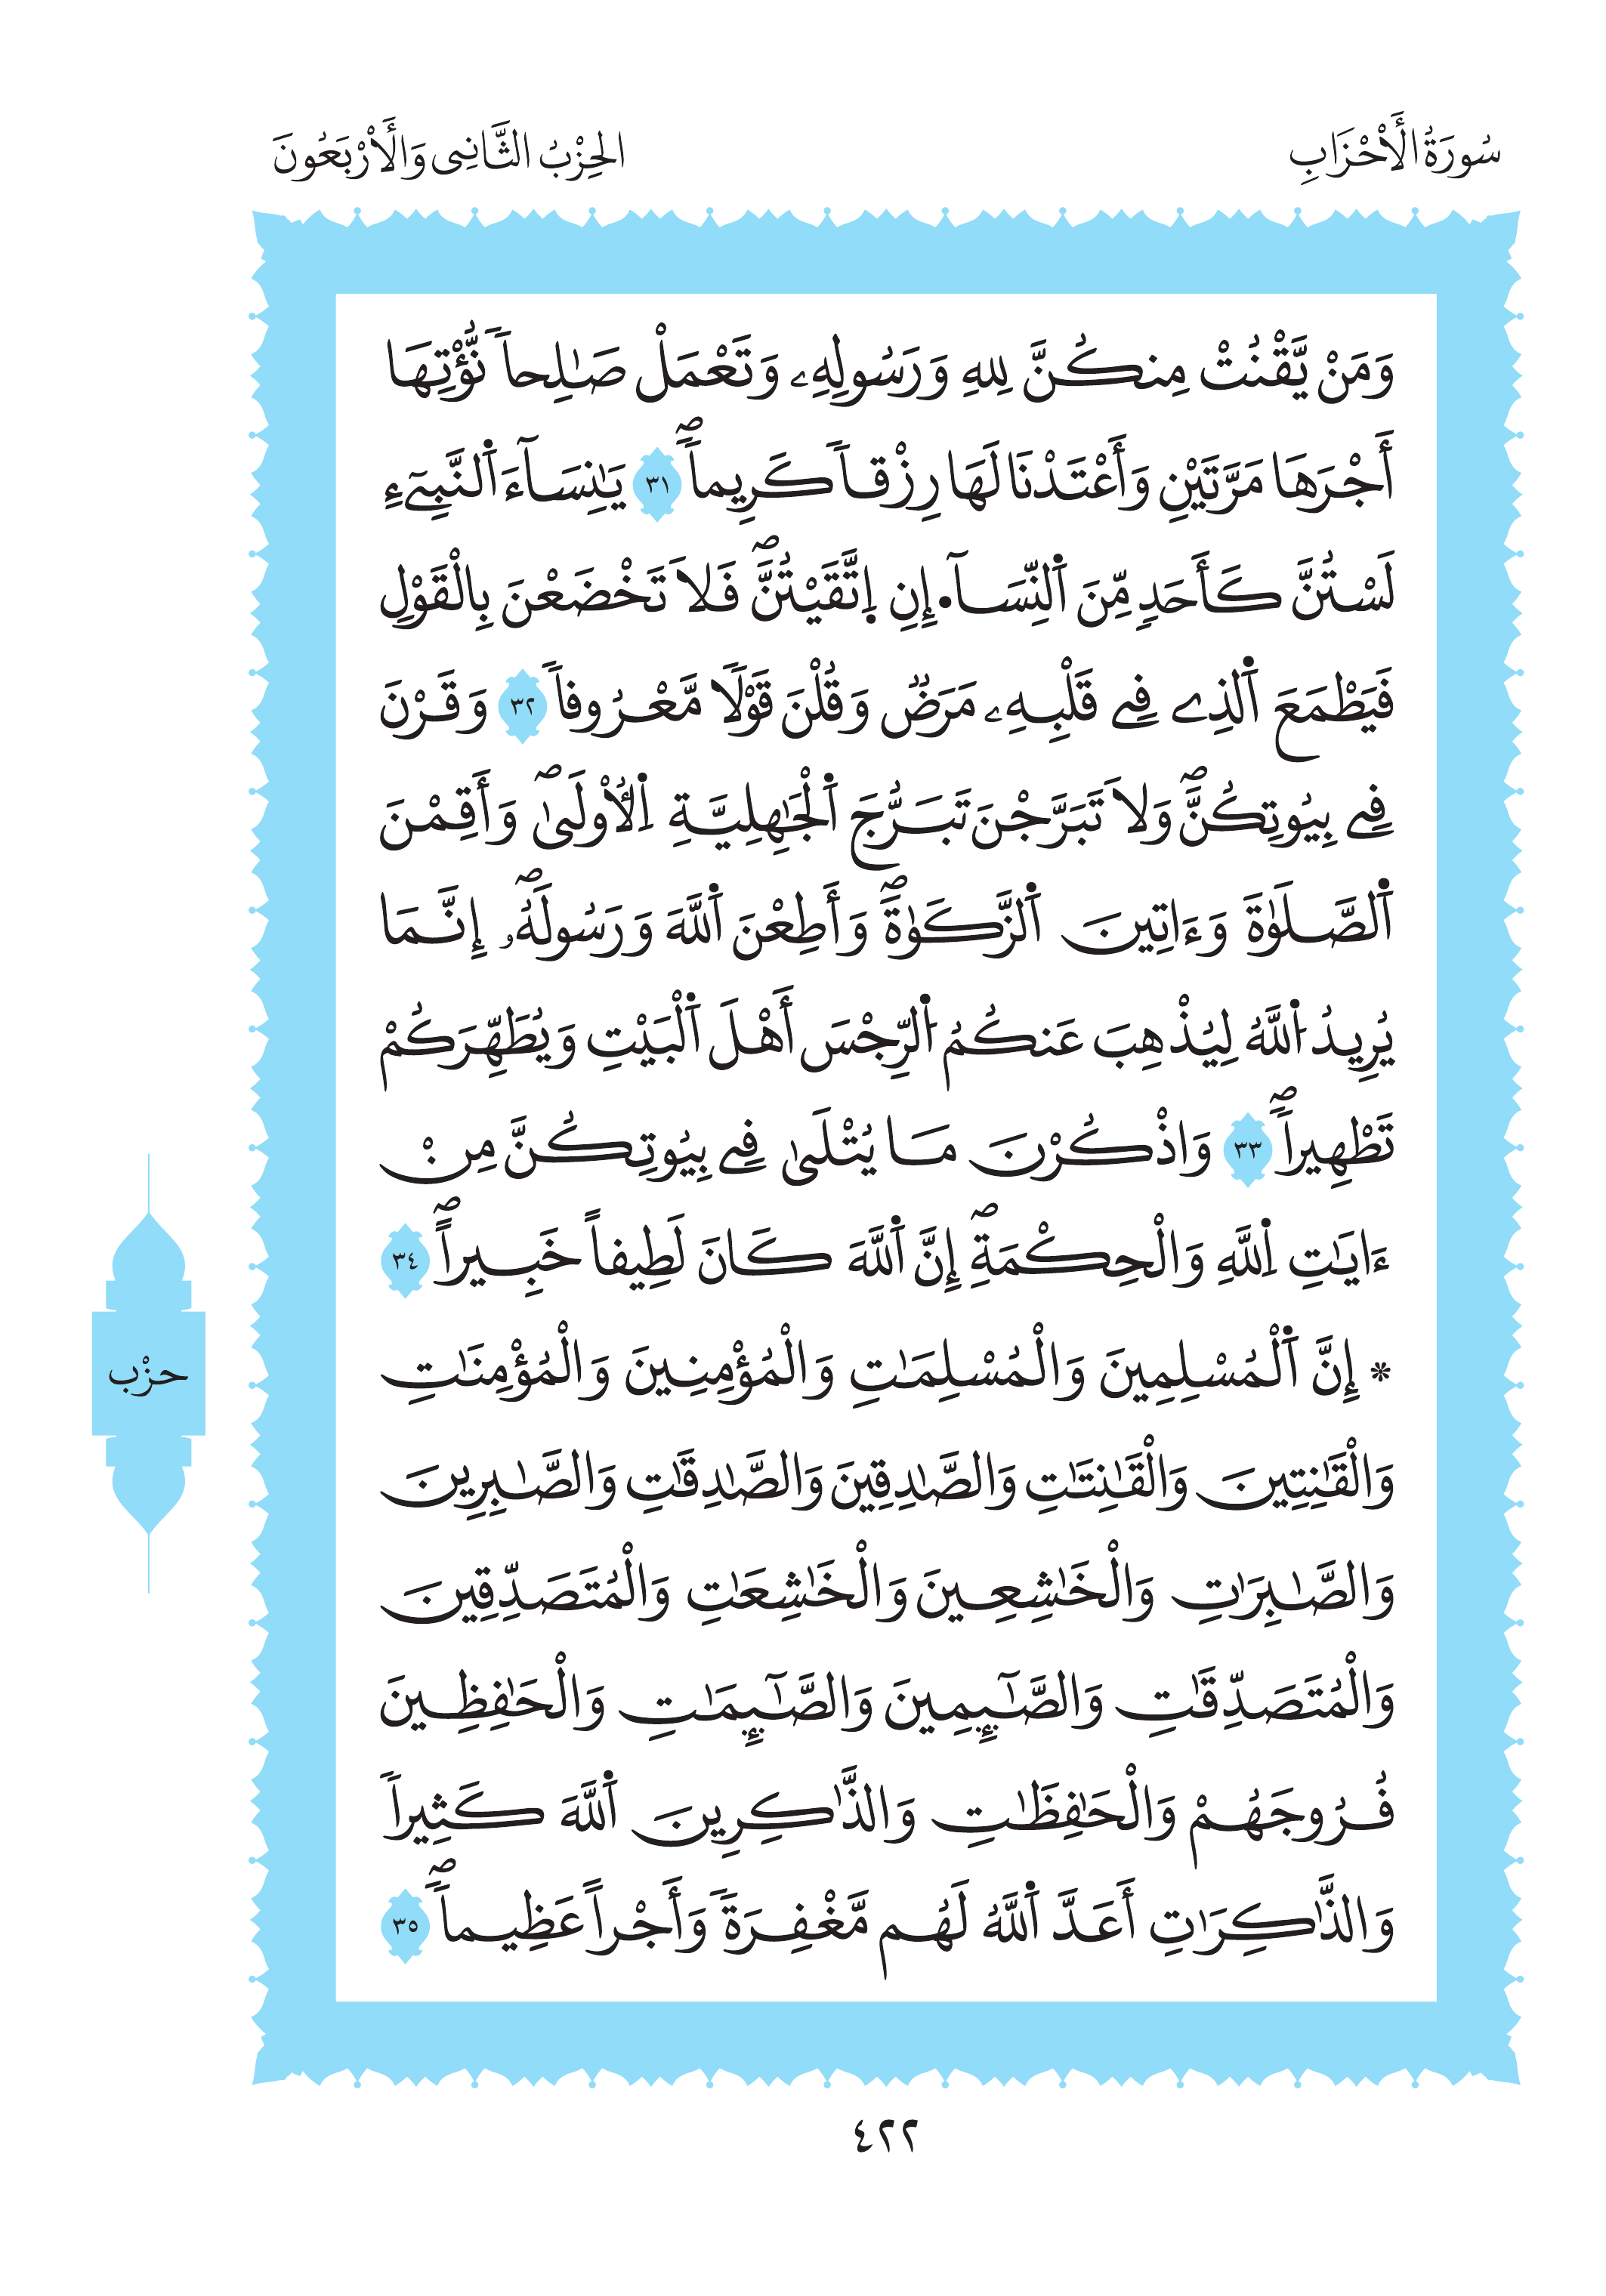 سُورَةُ الْأَحْزَابِ
الحِزْبُ الثَّانِي وَالْأَرْبَعُونَ
وَمَنْ يَّقْنُتْ مِنكُنَّ لِلهِ وَرَسُولِهِۦ وَتَعْمَلْ صَٰلِحاٗ نُّؤْتِهَا
أَجْرَهَا مَرَّتَيْنِ وَأَعْتَدْنَا لَهَا رِزْقاٗ كَرِيماٗۖ ٣١ يَٰنِسَآءَ اَ۬لنَّبِيٓءِ
لَسْتُنَّ كَأَحَدٖ مِّنَ اَ۬لنِّسَآ•إِنِ اِ۪تَّقَيْتُنَّۖ فَلَا تَخْضَعْنَ بِالْقَوْلِ
فَيَطْمَعَ اَ۬لذِے فِے قَلْبِهِۦ مَرَضٞ وَقُلْنَ قَوْلاٗ مَّعْرُوفاٗ ٣٢ وَقَرْنَ
فِے بِيُوتِكُنَّۖ وَلَا تَبَرَّجْنَ تَبَرُّجَ اَ۬لْجَٰهِلِيَّةِ اِ۬لُاولَىٰۖ وَأَقِمْنَ
اَ۬لصَّلَوٰةَ وَءَاتِينَ اَ۬لزَّكَوٰةَۖ وَأَطِعْنَ اَ۬للَّهَ وَرَسُولَهُۥۖ إِنَّمَا
يُرِيدُ اُ۬للَّهُ لِيُذْهِبَ عَنكُمُ اُ۬لرِّجْسَ أَهْلَ اَ۬لْبَيْتِ وَيُطَهِّرَكُمْ
تَطْهِيراٗۖ ٣٣ وَاذْكُرْنَ مَا يُتْلَىٰ فِے بِيُوتِكُنَّ مِنْ
ءَايَٰتِ اِ۬للَّهِ وَالْحِكْمَةِۖ إِنَّ اَ۬للَّهَ كَانَ لَطِيفاً خَبِيراًۖ ٣٤
* إِنَّ اَ۬لْمُسْلِمِينَ وَالْمُسْلِمَٰتِ وَالْمُؤْمِنِينَ وَالْمُؤْمِنَٰتِ
وَالْقَٰنِتِينَ وَالْقَٰنِتَٰتِ وَالصَّٰدِقِينَ وَالصَّٰدِقَٰتِ وَالصَّٰبِرِينَ
وَالصَّٰبِرَٰتِ وَالْخَٰشِعِينَ وَالْخَٰشِعَٰتِ وَالْمُتَصَدِّقِينَ
وَالْمُتَصَدِّقَٰتِ وَالصَّٰٓئِمِينَ وَالصَّٰٓئِمَٰتِ وَالْحَٰفِظِينَ
فُرُوجَهُمْ وَالْحَٰفِظَٰتِ وَالذَّٰكِرِينَ اَ۬للَّهَ كَثِيراٗ
وَالذَّٰكِرَٰتِ أَعَدَّ اَ۬للَّهُ لَهُم مَّغْفِرَةٗ وَأَجْراً عَظِيماٗۖ ٣٥
حِزْب
٤٢٢